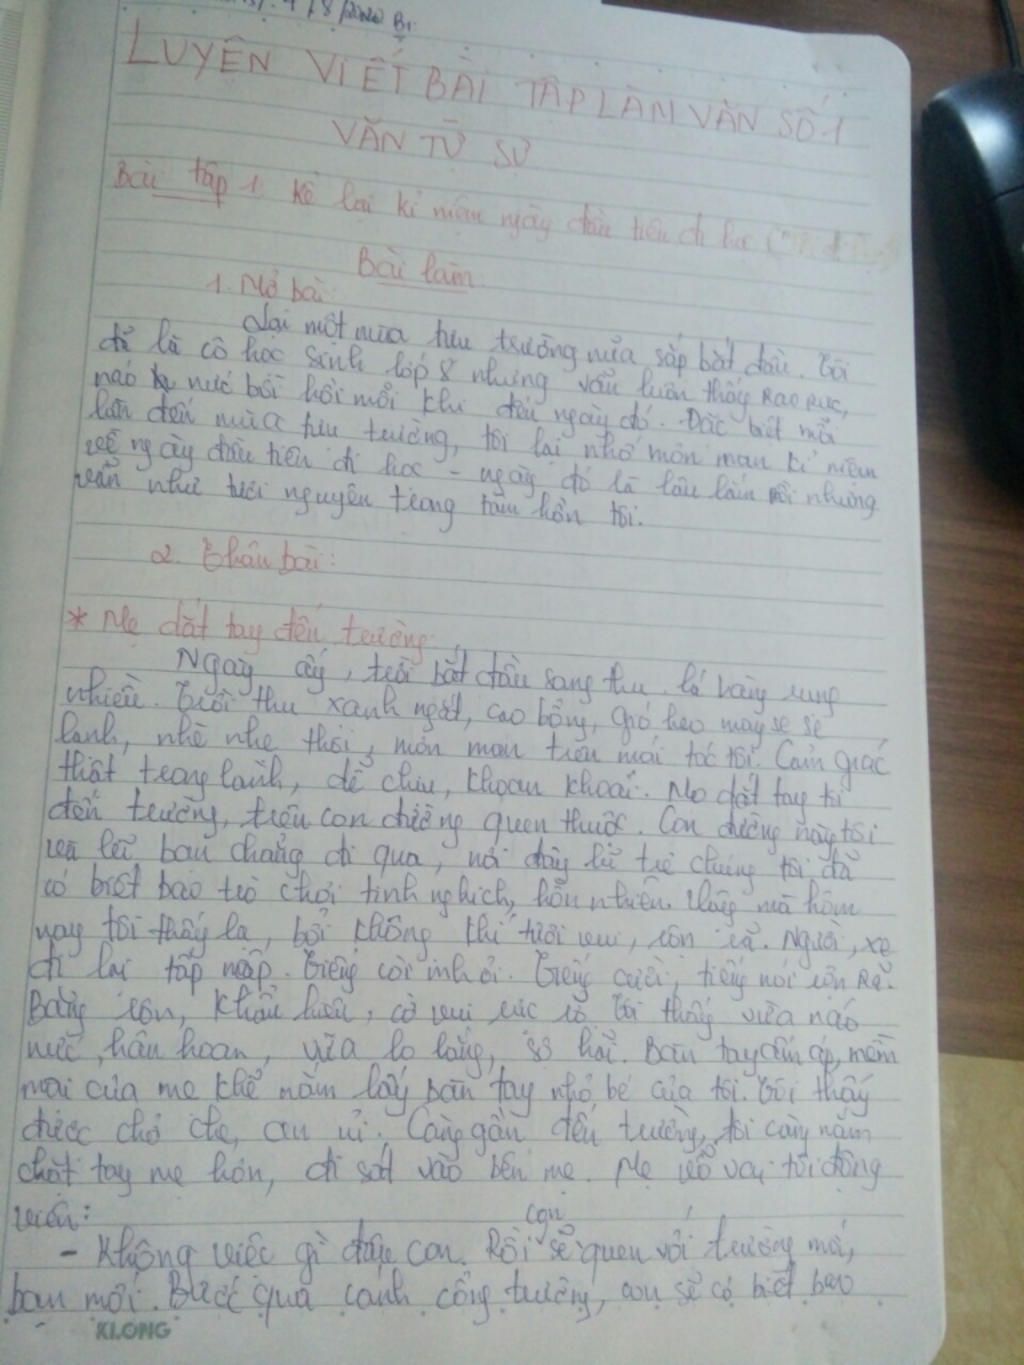 LUYỆN VIẾT BÀI TẬP LÀM VĂN SỐ 1
VĂN TỰ SỰ
Bài tập 1. Kể lại kỉ niệm ngày đầu tiên đi học
Bài làm
1. Mở bài
Lại một mùa tựu trường nữa sắp bắt đầu. Tôi
đã là cô học sinh lớp 8 nhưng vẫn luôn thấy rạo rực,
náo nức bồi hồi mỗi khi đến ngày đó. Đặc biệt mỗi
lần đến mùa tựu trường, tôi lại nhớ mơn man kỉ niệm
về ngày đầu tiên đi học - ngày đó là lâu lắm rồi nhưng
vẫn như tươi nguyên trong tâm hồn tôi.
2. Thân bài:
* Mẹ dắt tay đến trường:
Ngày ấy, trời bắt đầu sang thu lá vàng rụng
nhiều. Trời thu xanh ngắt, cao bổng, gió heo may se se
lạnh, nhè nhẹ thổi, mơn man trên mái tóc tôi. Cảm giác
thật trong lành, dễ chịu, khoan khoái. Mẹ dắt tay tôi
đến trường, trên con đường quen thuộc. Con đường này tôi
và lũ bạn chẳng đi qua, nơi đây lũ trẻ chúng tôi đã
có biết bao trò chơi tinh nghịch, hồn nhiên. Vậy mà hôm
nay tôi thấy lạ, bởi không khí tươi vui, rộn rã. Người, xe
đi lại tấp nập. Tiếng còi inh ỏi. Tiếng cười, tiếng nói rộn rã.
Băng rôn, khẩu hiệu, cờ vui rực rỡ Tôi thấy vừa náo
nức, hân hoan, vừa lo lắng, sợ hãi. Bàn tay ấm áp, mềm
mại của mẹ khẽ nắm lấy bàn tay nhỏ bé của tôi. Tôi thấy
được chở che, an ủi. Càng gần đến trường, tôi càng nắm
chặt tay mẹ hơn, đi sát vào bên mẹ. Mẹ vỗ vai tôi động
viên:
- Không việc gì đâu con. Rồi con sẽ quen với trường mới,
bạn mới. Bước qua cánh cổng trường, con sẽ có biết bao
KLONG